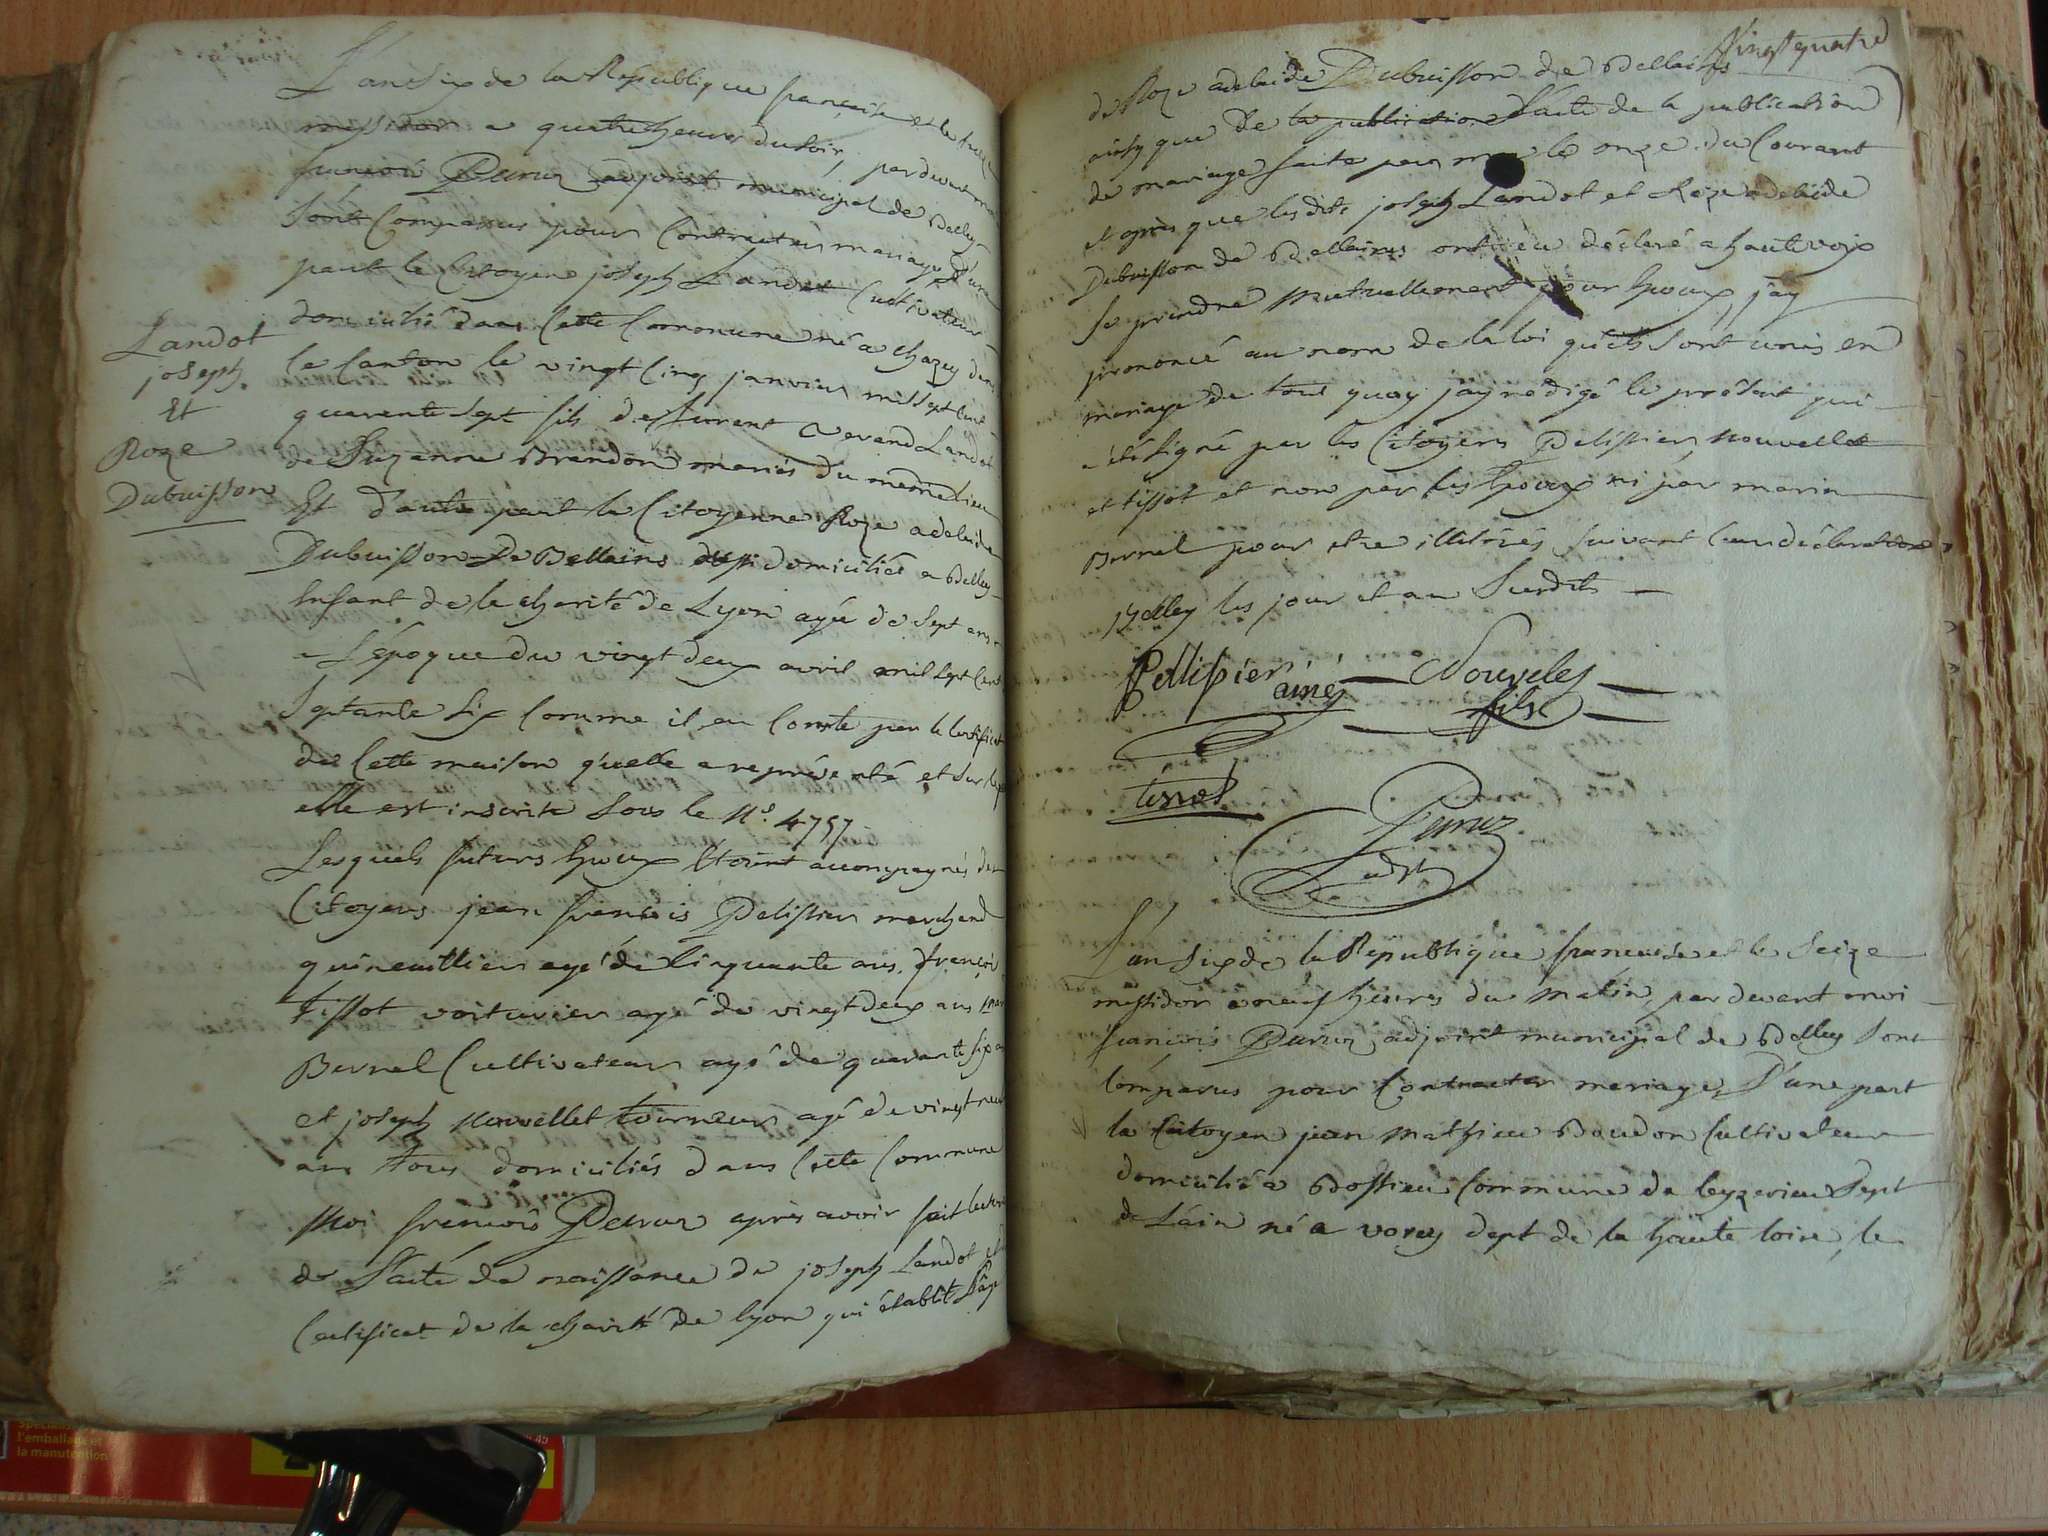 L'an six de la Republique française et le treize
messidor a quatre heures du soir, par devant moi
francois Peruz adjoint municipal de Belley
Sont Comparus pour Contracter mariage D'une
part le Citoyen joseph Landot Cultivateur
domicilié dans Cette Commune né a Chazey dans
le Canton le vingt Cinq janvier mil sept Cent
quarante sept fils de Landot
de Suzanne Brandon mariés du meme Lieu
Et D'autre part la Citoyenne Roze adelaide
Dubuisson De Bellains aussi domiciliée a Belley
Enfant de la charité de Lyon agée de Sept ans
a L'époque du vingt deux avril mil sept Cent
Septante Six Comme il en Conste par le Certificat
de Cette maison qu'elle a représenté, et sur
elle est inscrite Sous le N.º 4757
Lesquels futurs Epoux Etoient accompagnés des
Citoyens jean francois Pelissier marchand
quincaillier agé de Cinquante ans, francois
tissot voiturier agé de vingt deux ans
Bernel Cultivateur agé de quarante six ans
et joseph nouvellet tourneur agé de vingt neuf
ans tous domiciliés dans Cette Commune
Moi francois Peruz après avoir fait lecture
de L'acte de naissance de joseph Landot et
Certificat de la charité de lyon qui établit L'âge
Landot
joseph.
Et
Roze
Dubuisson
Vingt quatre
de Roze adelaide Dubuisson de Bellains
ainsy que de la publication L'acte de la publication
de mariage faite par moi le onze du Courant
et après que lesdits joseph Landot et Roze adelaide
Dubuisson de Bellains ont eu déclaré a haute voix
Se prendre mutuellement pour Epoux, j'ay
prononcé au nom de la loi qu'ils sont unis en
mariage de tout quoy j'ay rédigé le présent qui
a été signé par les Citoyens Pelissier, nouvellet
et tissot et non par les Epoux ni par marin
Bernel pour etre illitérés suivant leur déclaration
Belley les jour et an Susdits
Pellissier ainé Nouveles
fils
tissot
Peruz
adjt
L'an Six de la Republique francaise et le Seize
messidor a neuf heures du matin, par devant moi
francois Peruz adjoint municipal de Belley Sont
Comparus pour Contracter mariage, D'une part
le Citoyen jean mathieu Boudon Cultivateur
domicilié a Bossieu Commune de Ceyzerieu Dept
de L'ain né a vorey dept de la haute loire, le